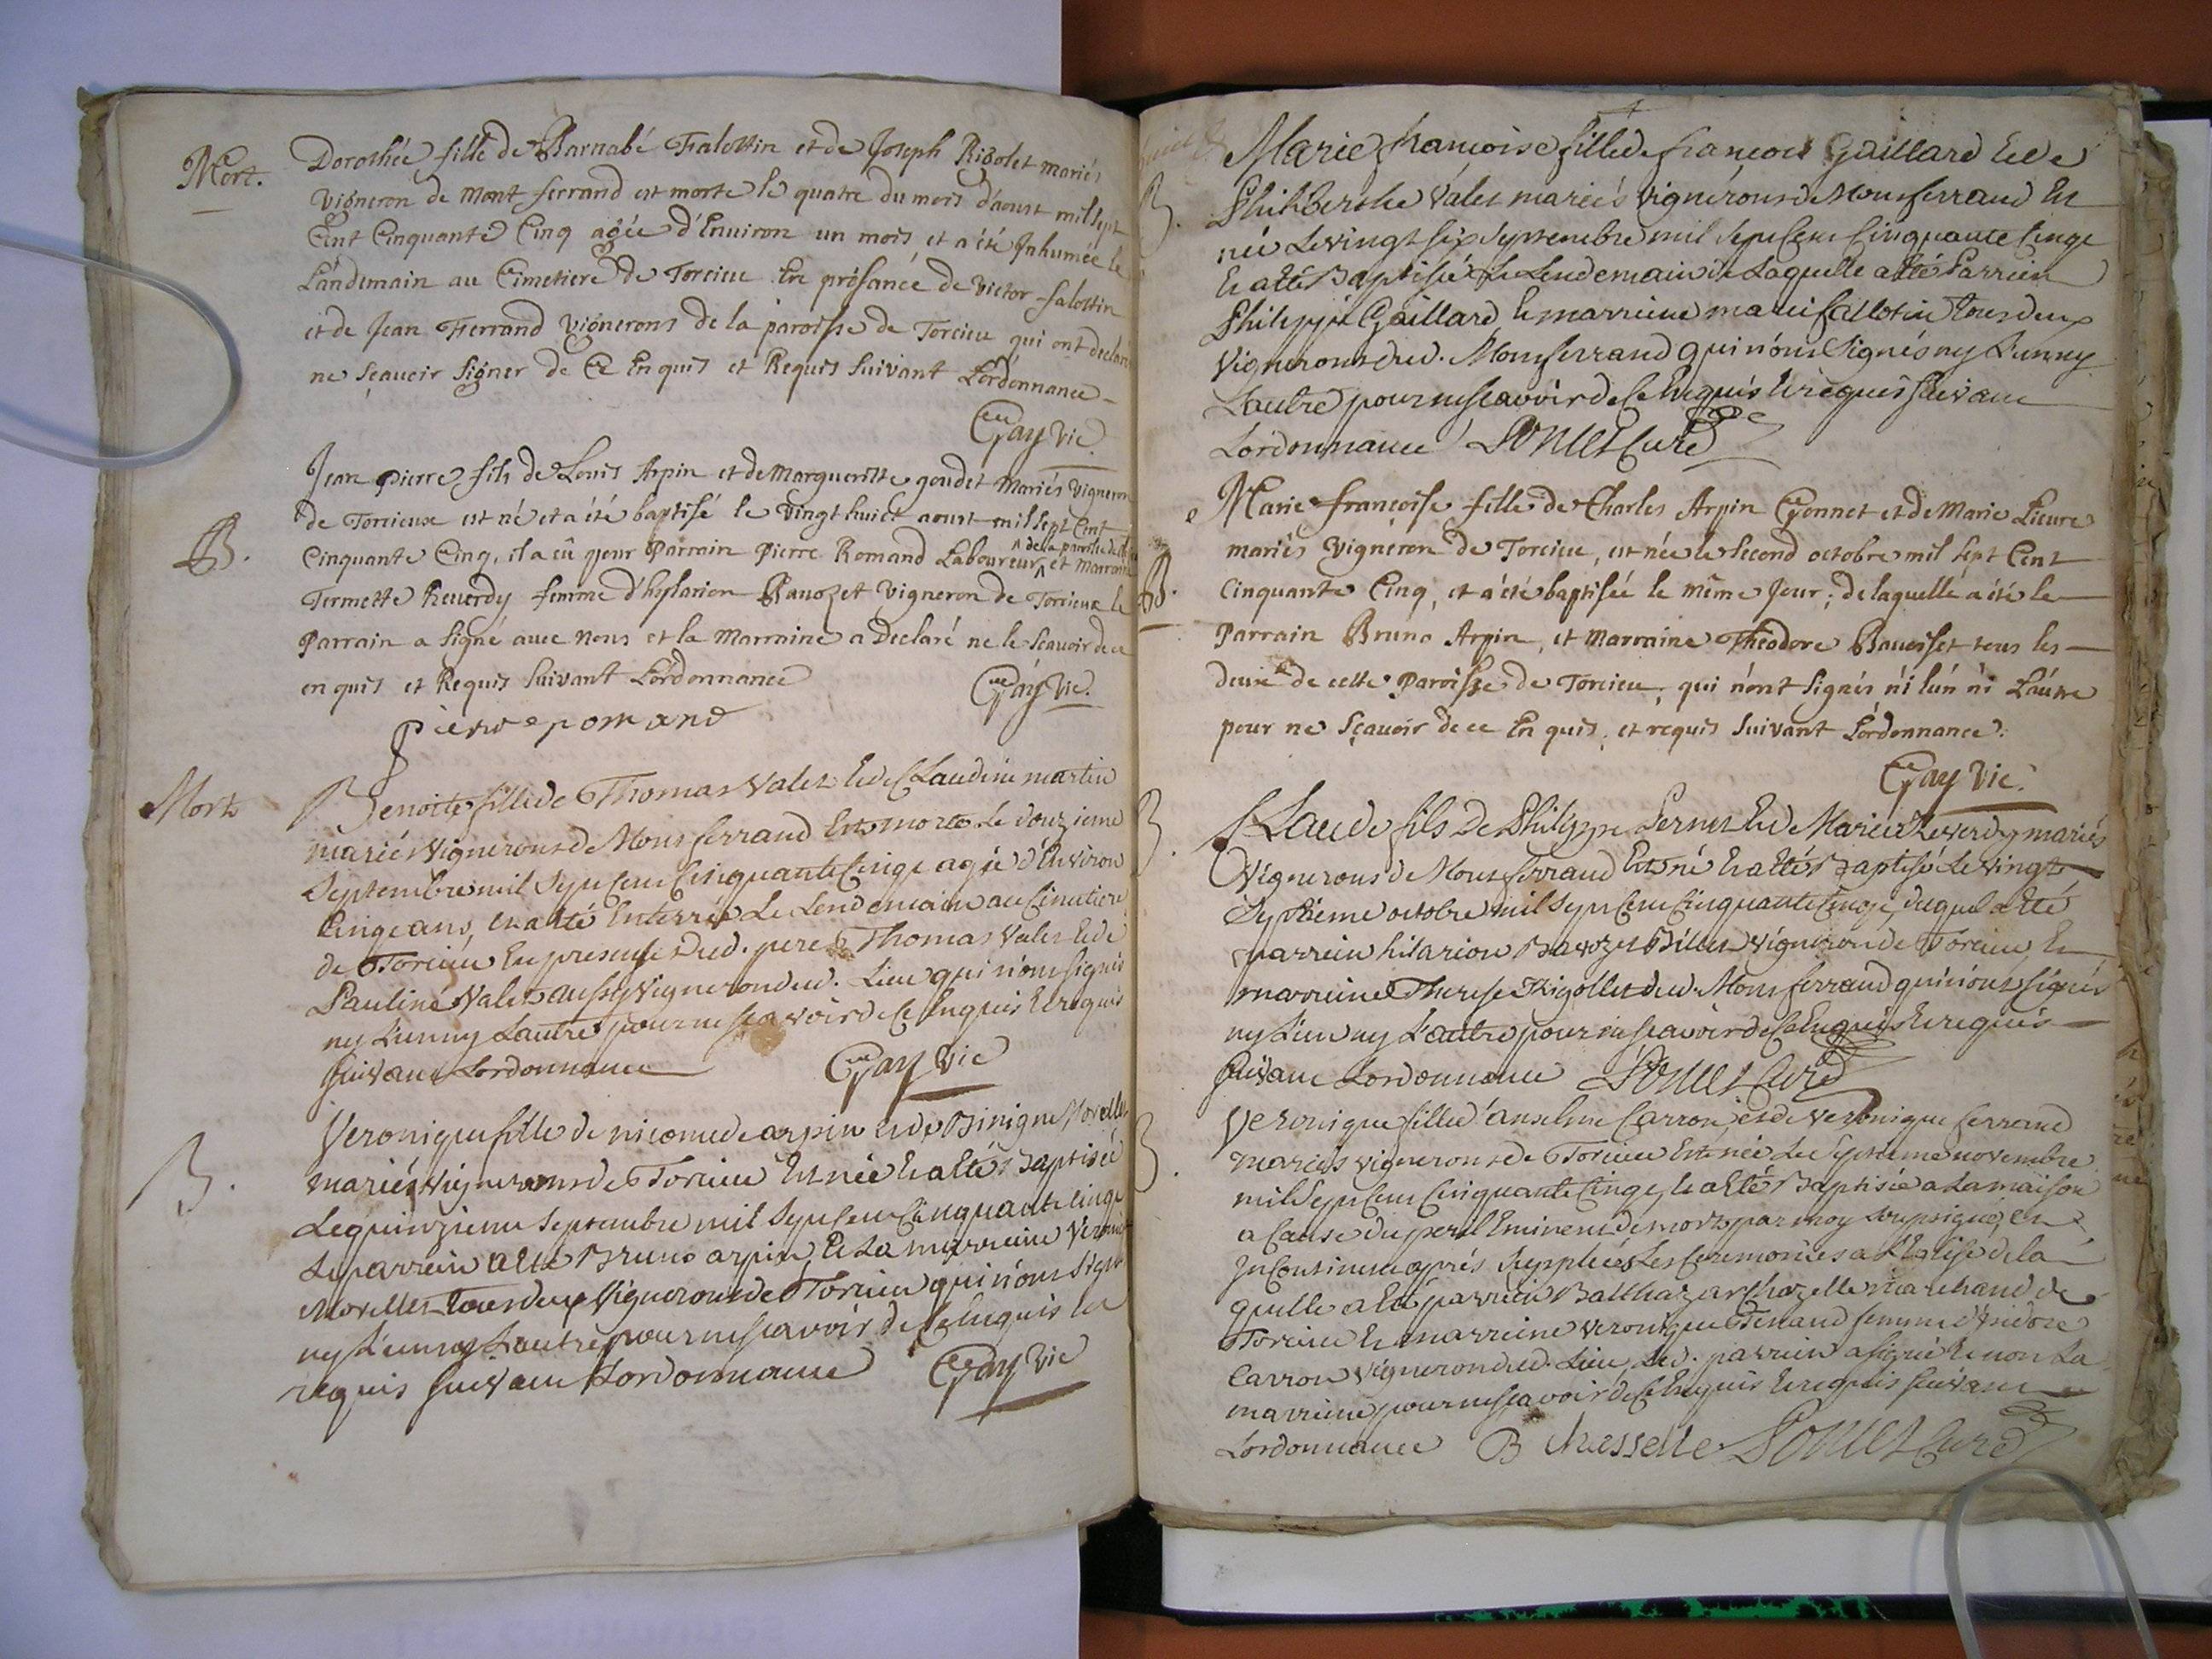 Mort.
Dorothée fille de Barnabé Falottin et de Joseph Rigolet mariés
vigneron de Mont ferrand est morte le quatre du mois d'aoust mil sept
Cent Cinquante Cinq agée d'Environ un mois et a été Inhumée le
Landemain au Cimetiere de Torcieu En présance de Victor falottin
et de Jean Ferrand vignerons de la paroisse de Torcieu qui ont declaré
ne sçavoir signer de Ce Enquis et Requis suivant Lordonnance
Gay Vic.
B.
Jean pierre fils de Louis Arpin et de Margueritte goudet Mariés vigneron
de Torcieux est né et a été baptisé le vingt huict aoust mil sept Cent
Cinquante Cinq, il a eû pour Parrain Pierre Romand Laboureur de la paroisse et Marraine
Termette Reverdy femme d'hylarion Bavozet vigneron de Torcieux le
Parrain a signé avec nous et la Marraine a Declaré ne le scavoir de ce
enquis et Requis suivant Lordonnance
Gay Vic.
pierre romand
Mort
Benoite fille de Thomas Valet Et de Claudine martin
mariés vignerons de Monferrand Est morte le douzieme
Septembre mil sept Cent Cinquante Cinq agée d'Environ
Cinq ans, Et a été Enterrée Le Lendemain au Cimetiere
de Torcieu En presence dud. pere Thomas Valet Et de
Pauline Valet aussy vigneron dud. Lieu qui n'ont signés
ny L'un ny L'autre pour ne scavoir de Ce Enquis Et requis
suivant Lordonnance
Gay Vic
B.
Veronique fille de nicomede arpin Et de Binigne Morellet
mariés vignerons de Torcieu Est née Et a été Baptisée
Le quinzieme Septembre mil sept Cent Cinquante Cinq
Le parrein a été Bruno arpin, Et La marreine Veronique
Morellet tous deux Vignerons de Torcieu qui n'ont signé
ny L'un ny L'autre pour ne scavoir de Ce Enquis Et
requis suivant Lordonnance
Gay Vic
B.
Marie francoise fille de francois Gaillard Et de
Philiberthe Valet mariés vignerons de Monferrand Est
née Le vingt six Septembre mil sept Cent Cinquante Cinq
Et a été Baptisée Le Lendemain de Laquelle a été Parrein
Philippe Gaillard Et marreine marie fallotin tous deux
Vignerons dud. Monferrand qui n'ont signés ny L'un ny
L'autre pour ne scavoir de Ce Enquis Et requis suivant
Lordonnance Poncet Curé
B.
Marie françoise fille de Charles Arpin Gonnet et de Marie Lieure
mariés Vigneron de Torcieu, est née le second octobre mil sept Cent
Cinquante Cinq, et a été baptisée le même Jour; de laquelle a été le
Parrain Bruno Arpin, et Marraine Théodore Bavosset tous les
deux de cette Paroisse de Torcieu, qui n'ont signés ni l'un ni Lautre
pour ne Sçavoir de ce Enquis, et requis suivant Lordonnance.
Gay Vic.
B.
Claude fils de Philippe Pernet Et de Marie Reverdy mariés
Vignerons de Monferrand Est né Et a été Baptisé Le vingt
Septieme octobre mil sept Cent Cinquante Cinq, duquel a été
parrein hilarion Bavozet Billet vigneron de Torcieu, Et
marreine Therese Rigollet dud. Monferrand qui n'ont signés
ny L'un ny L'autre pour ne scavoir de Ce Enquis Et requis
suivant Lordonnance Poncet Curé
B.
Veronique fille d'anselme Carron et de Veronique ferrand
mariés vignerons de Torcieu Est née Le Septieme novembre
mil sept Cent Cinquante Cinq, Et a été Baptisée a La maison
a Cause du peril Eminent de mort par moy soussigné, Et
Incontinent aprés Suppléés Les Ceremonies a L'Eglise de la
quelle a été parrein Balthazar marchand de
Torcieu Et marreine Veronique Ferrand femme d'Isidore
Carron vigneron dud. Lieu, Led. parrein a signé Et non La
marreine pour ne scavoir de Ce Enquis Et requis suivant
Lordonnance Poncet Curé